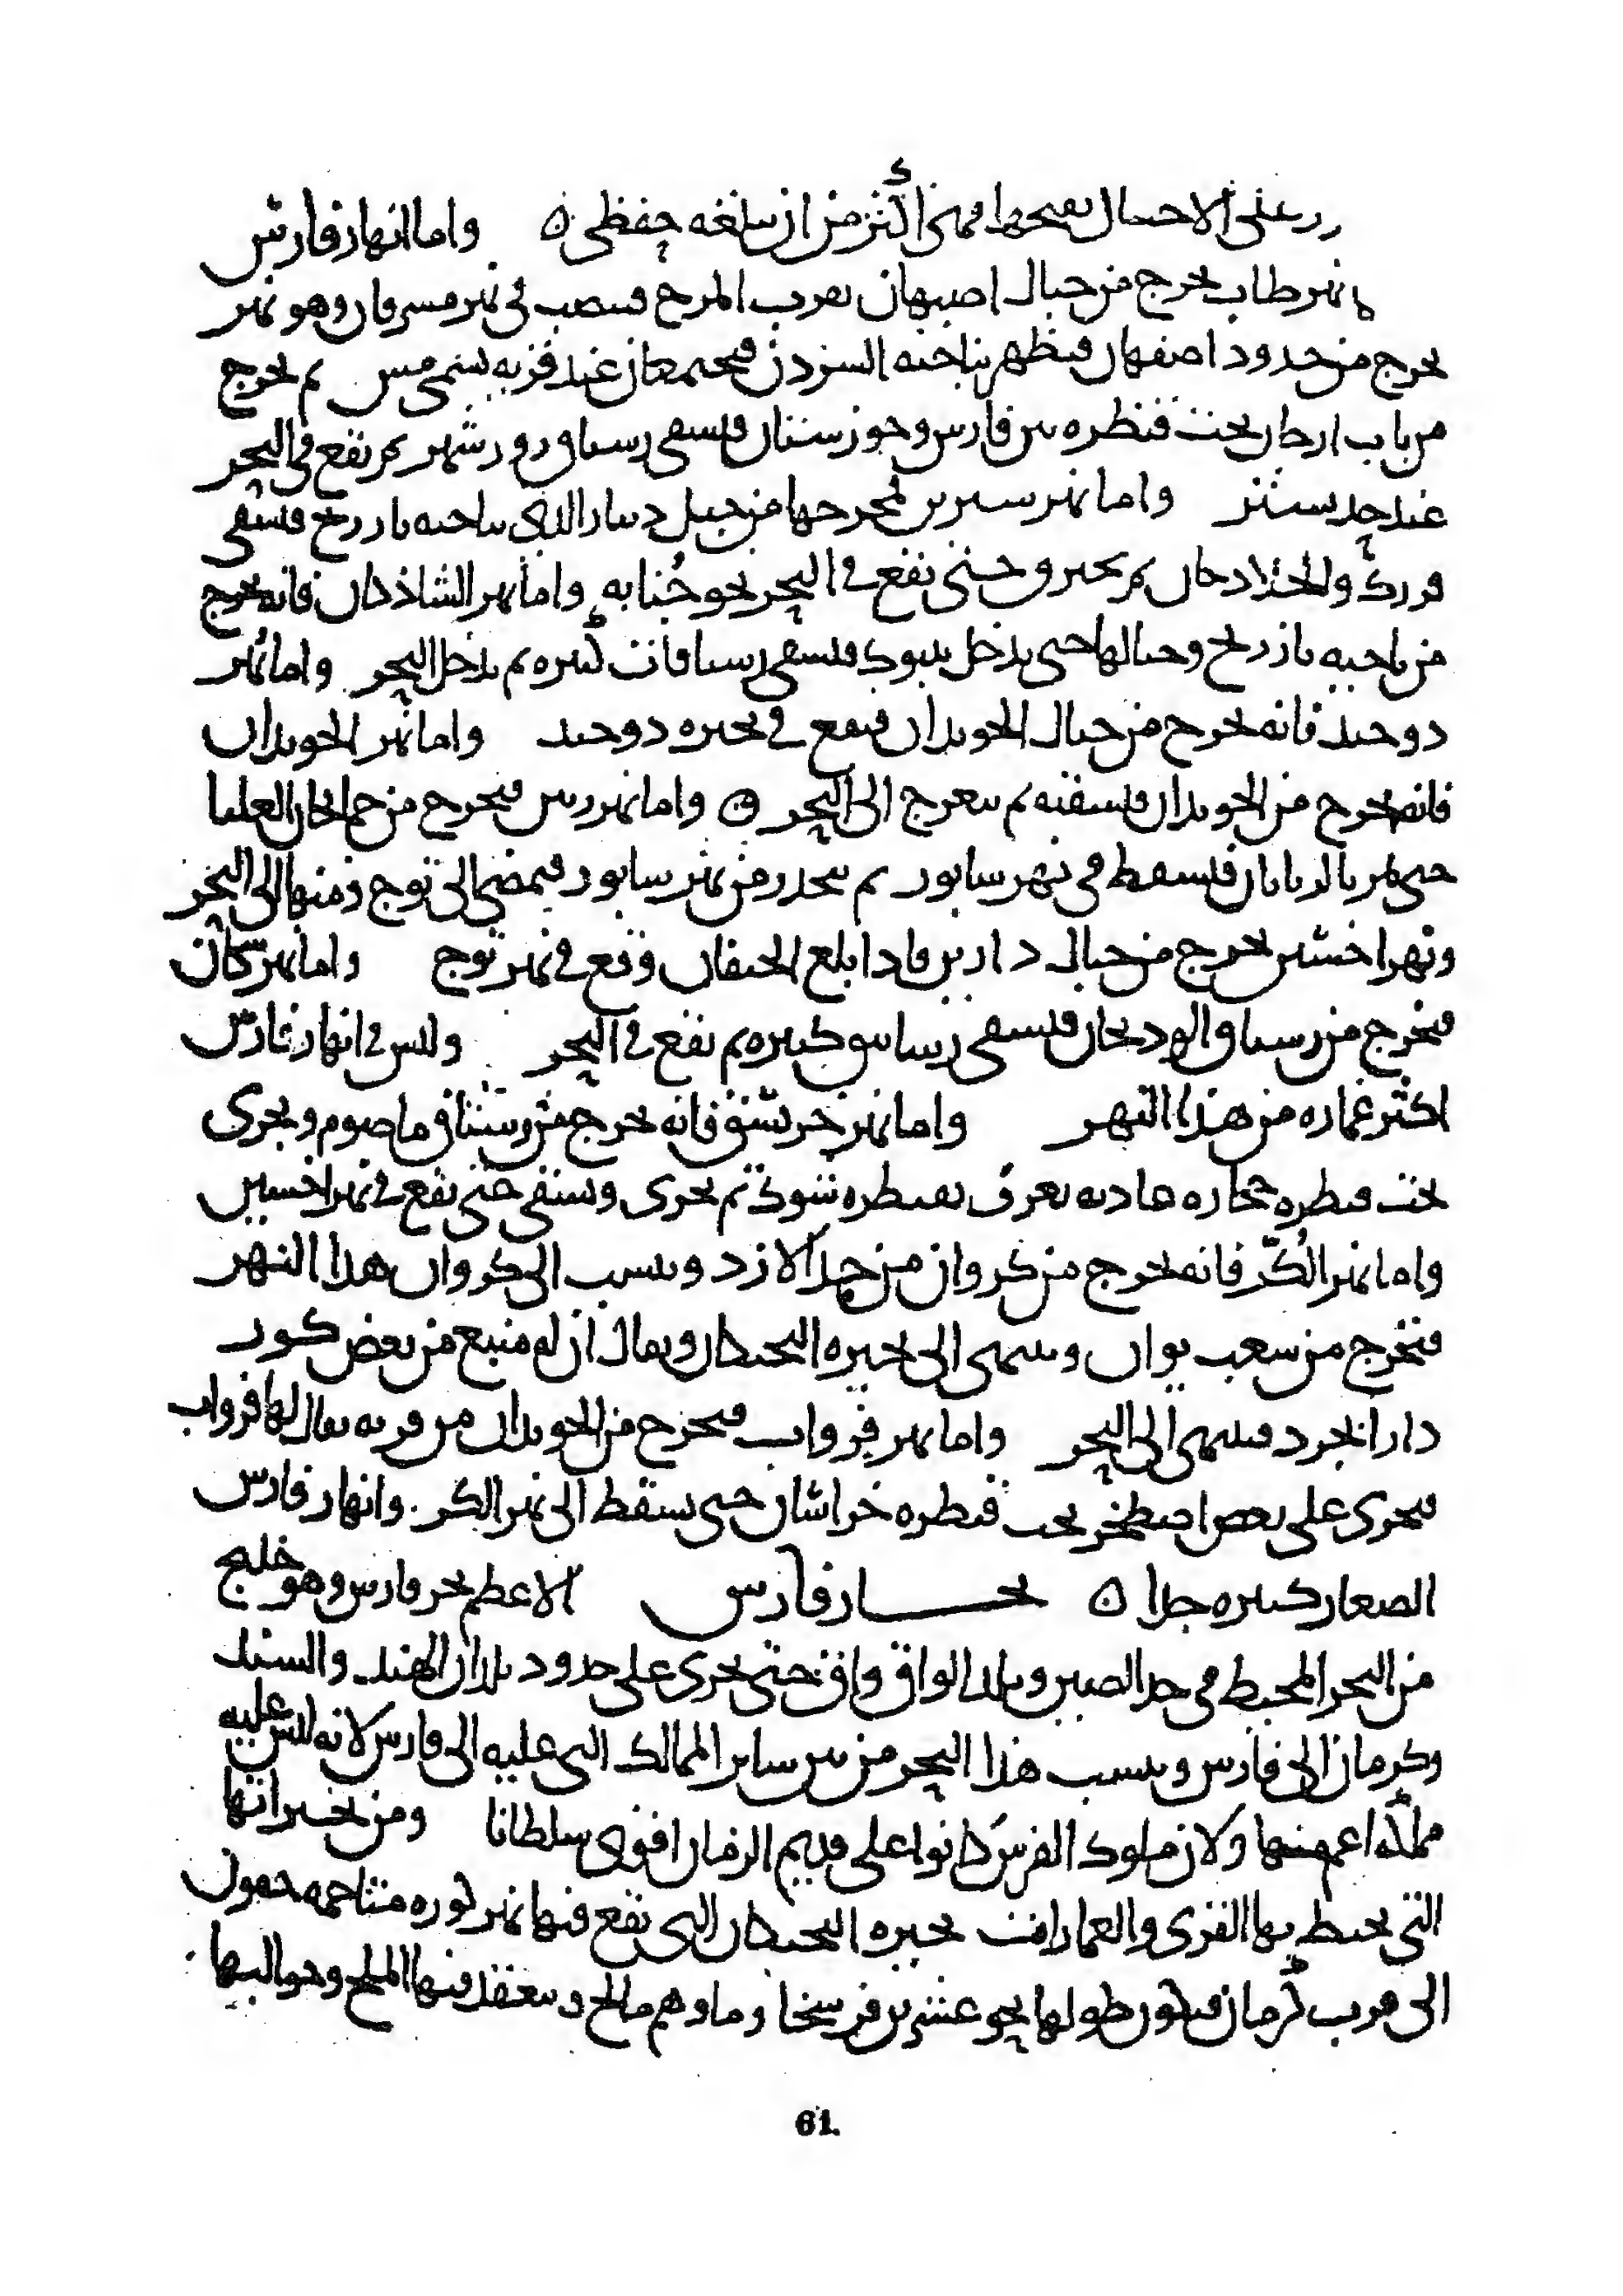 على الاحمال بصحها فهى اكثر من ان يبلغه حفظى ه واما انهار فارس
نهر طاب يخرج من جبال اصبهان بقرب المرج فيصب فى نهر مسرقان وهو نهر
يخرج من حدود اصفهان فيظهر بناحيه السردن فيجتمعان عند قريه تسمى مس ثم يخرج
من باب ارجان تحت قنطره بين فارس وخوزستان فيسقى رستاق رورشهر ثم يقع فى البحر
عند حد سينيز واما نهر سيرين فمخرجها من جبل دينار الذى بناحيه بازرنج فيسقى
فرزك والجلادجان ثم يجرى حتى يقع فى البحر نحو جنابه واما نهر الشاذكان فانه يخرج
من ناحيه بازرنج وجبالها حتى يدخل تنبوك فيسقى رستاقات كثيره ثم يدخل البحر واما نهر
دوحيد فانه يخرج من جبال الخويدان فيقع فى بحيره دوحيد واما نهر الخويدان
فانه يخرج من الخويدان فيسقيه ثم يتعرج الى البحر ه واما نهر رتين فيخرج من خمايجان العليا
حتى يمر بالزيابان فيسقط فى نهر سابور ثم ينحدر من نهر سابور فيمضى الى توج ومنها الى البحر
ونهر اخشين يخرج من جبال دادين فاذا بلغ الجنقان وقع فى نهر توج واما نهر سكان
فيخرج من رستاق الرويحان فيسقى رساتيق كثيره ثم يقع فى البحر وليس فى انهار فارس
اكثر عماره من هذا النهر واما نهر جرشيق فانه يخرج من رستاق ماصرم ويجرى
تحت قنطره حجاره عاديه تعرف بقنطره سبوك ثم يجرى ويسقى حتى يقع فى نهر اخشين
واما نهر الكر فانه يخرج من كروان من حد الازد وينسب الى كروان هذا النهر
فيخرج من شعب بوان وينتهى الى بحيره البختكان ويقال ان له منبع من بعض كور
دارابجرد فينتهى الى البحر واما نهر فرواب فيخرج من الخويدان من قريه يقال لها فرواب
فيجرى على بعض اصطخر تحت قنطره خراسان حتى يسقط الى نهر الكر وانهار فارس
الصغار كثيره جدا ه بحار فارس الاعظم بحر فارس وهو خليج
من البحر المحيط فى حد الصين وبلد الواق واق حتى يجرى على حدود بلدان الهند والسند
وكرمان الى فارس وينسب هذا البحر من بين ساير الممالك التى عليه الى فارس لانه ليس عليه
مملكه اعم منها ولان ملوك الفرس كانوا على قديم الزمان اقوى سلطانا ومن بحيراتها
التى يحيط بها القرى والعمارات بحيره البختكان التى يقع فيها نهر كوره متاخمه حمول
الى قرب كرمان فيكون طولها نحو عشرين فرسخا وماوهم مالح وينعقد فيها الملح وحواليها
61.